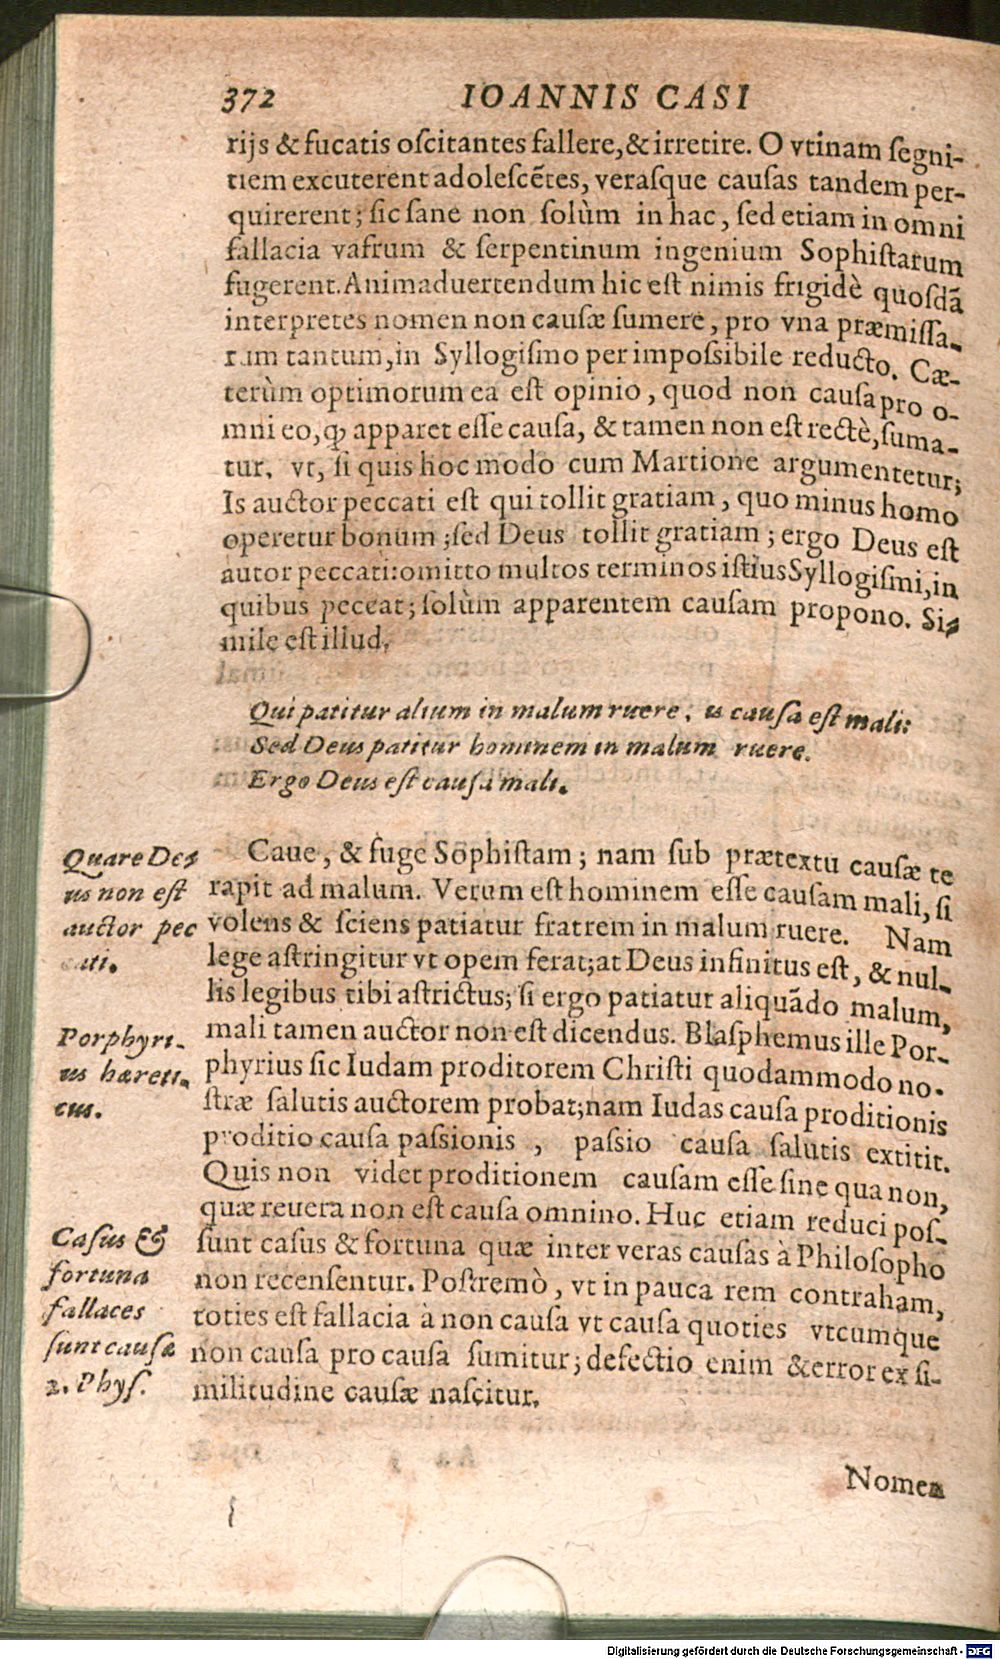 372 IOANNIS CASI
rijs & fucatis oſcitantes fallere,& irretire. O vtinam ſegni-
tiem excuterent adoleſcẽtes, veraſque cauſas tandem per-
quirerent; ſic ſane non ſolùm in hac, ſed etiam in omni
fallacia vafrum & ſerpentinum ingenium Sophiſtarum
fugerent. Animaduertendum hic eſt nimis frigidè quoſdã
interpretes nomen non cauſæ ſumere, pro vna præmiſſa-
rum tantum, in Syllogiſmo per impoſsibile reducto. Cæ-
terùm optimorum ea eſt opinio, quod non cauſa pro o-
mni eo, ꝙ apparet eſſe cauſa, & tamen non eſt rectè, ſuma-
tur. vt, ſi quis hoc modo cum Martione argumentetur;
Is auctor peccati eſt qui tollit gratiam, quo minus homo
operetur bonum ;ſed Deus tollit gratiam ; ergo Deus eſt
autor peccati: omitto multos terminos iſtius Syllogiſmi, in
quibus peccat; ſolùm apparentem cauſam propono. Si-
mile eſt illud.
Qui patitur alium in malum ruere, is cauſa eſt mali:
Sed Deus patitur hominem in malum ruere.
Ergo Deus eſt cauſa mali.
Caue, & fuge Sophiſtam ; nam ſub prætextu cauſæ te
rapit ad malum. Verum eſt hominem eſſe cauſam mali, ſi
volens & ſciens patiatur fratrem in malum ruere. Nam
lege aſtringitur vt opem ferat; at Deus infinitus eſt, & nul-
lis legibus tibi aſtrictus; ſi ergo patiatur aliquãdo malum,
mali tamen auctor non eſt dicendus. Blaſphemus ille Por-
phyrius ſic Iudam proditorem Chriſti quodammodo no-
ſtræ ſalutis auctorem probat; nam Iudas cauſa proditionis
proditio cauſa paſsionis , paſsio cauſa ſalutis extitit.
Quis non videt proditionem cauſam eſſe ſine qua non,
quæ reuera non eſt cauſa omnino. Huc etiam reduci poſ-
ſunt caſus & fortuna quæ inter veras cauſas à Philoſopho
non recenſentur. Poſtremò, vt in pauca rem contraham,
toties eſt fallacia à non cauſa vt cauſa quoties vtcumque
non cauſa pro cauſa ſumitur; defectio enim & error ex ſi-
militudine cauſæ naſcitur.
Quare De-
us non eſt
auctor pec
cati.
Porphyri-
us hæreti-
cus.
Caſus &
fortuna
fallaces
ſunt cauſæ
2. Phyſ.
Nomen
Digitalisierung gefördert durch die Deutsche Forschungsgemeinschaft - DFG